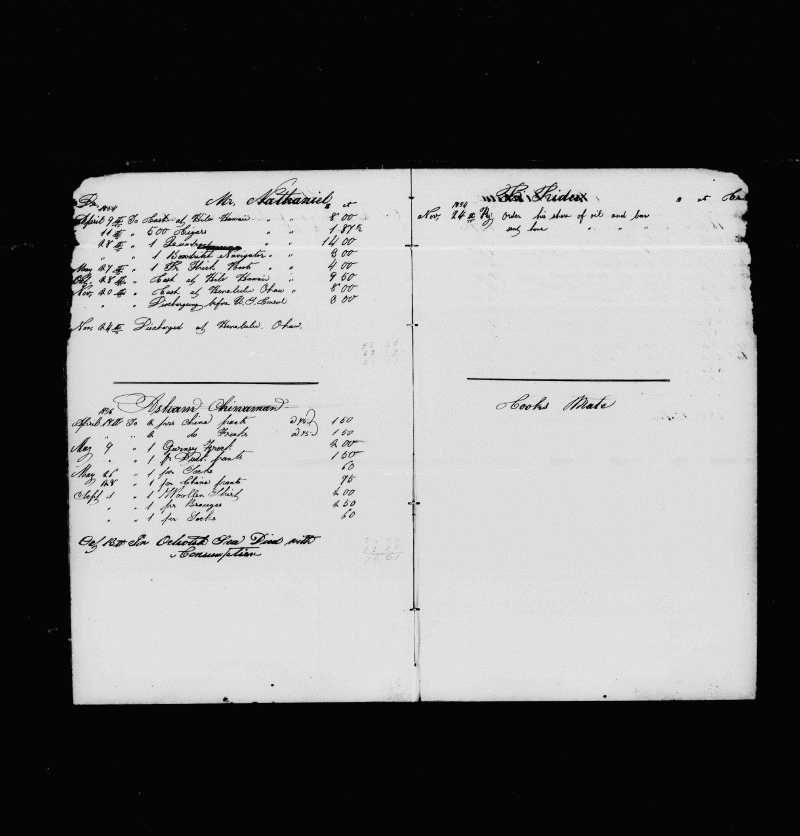 Dr. Mr. Nathaniel $ ct
1844
April 9th To Cash at Hilo Hawaii " " 8 00
11th " 500 Cigars " " 1 87½
28th " 1 " " 14 00
" " 1 Bowditch Navigator " " 3 00
May 27th " 1 Pr Thick Boots " " 4 00
Oct 28th " Cash at Hilo Hawaii " 9 50
Nov 20th " Cash at Honolulu Oahu " 8 00
" " Discharging before U.S. Consul 3 00
Nov 24th Discharged at Honolulu Oahu.
Asham Chinaman
April 19th To 2 pairs China pants @ 75 1 50
" " 2 do Frocks @ 75 1 50
May 9 " 1 Guernsey Frock 2 00
" 1 pr pants 1 50
May 26 " 1 pr Socks 50
28 " 1 pr China pants 75
Sept 1 " 1 Woollen Shirt 2 00
" 1 pr 2 50
" 1 pr Socks 50
Oct 13th In Ochotsk Sea Died with
Consumption
$ ct Cr
1844
Nov. 24th By order his share of oil and bone
Cooks Mate